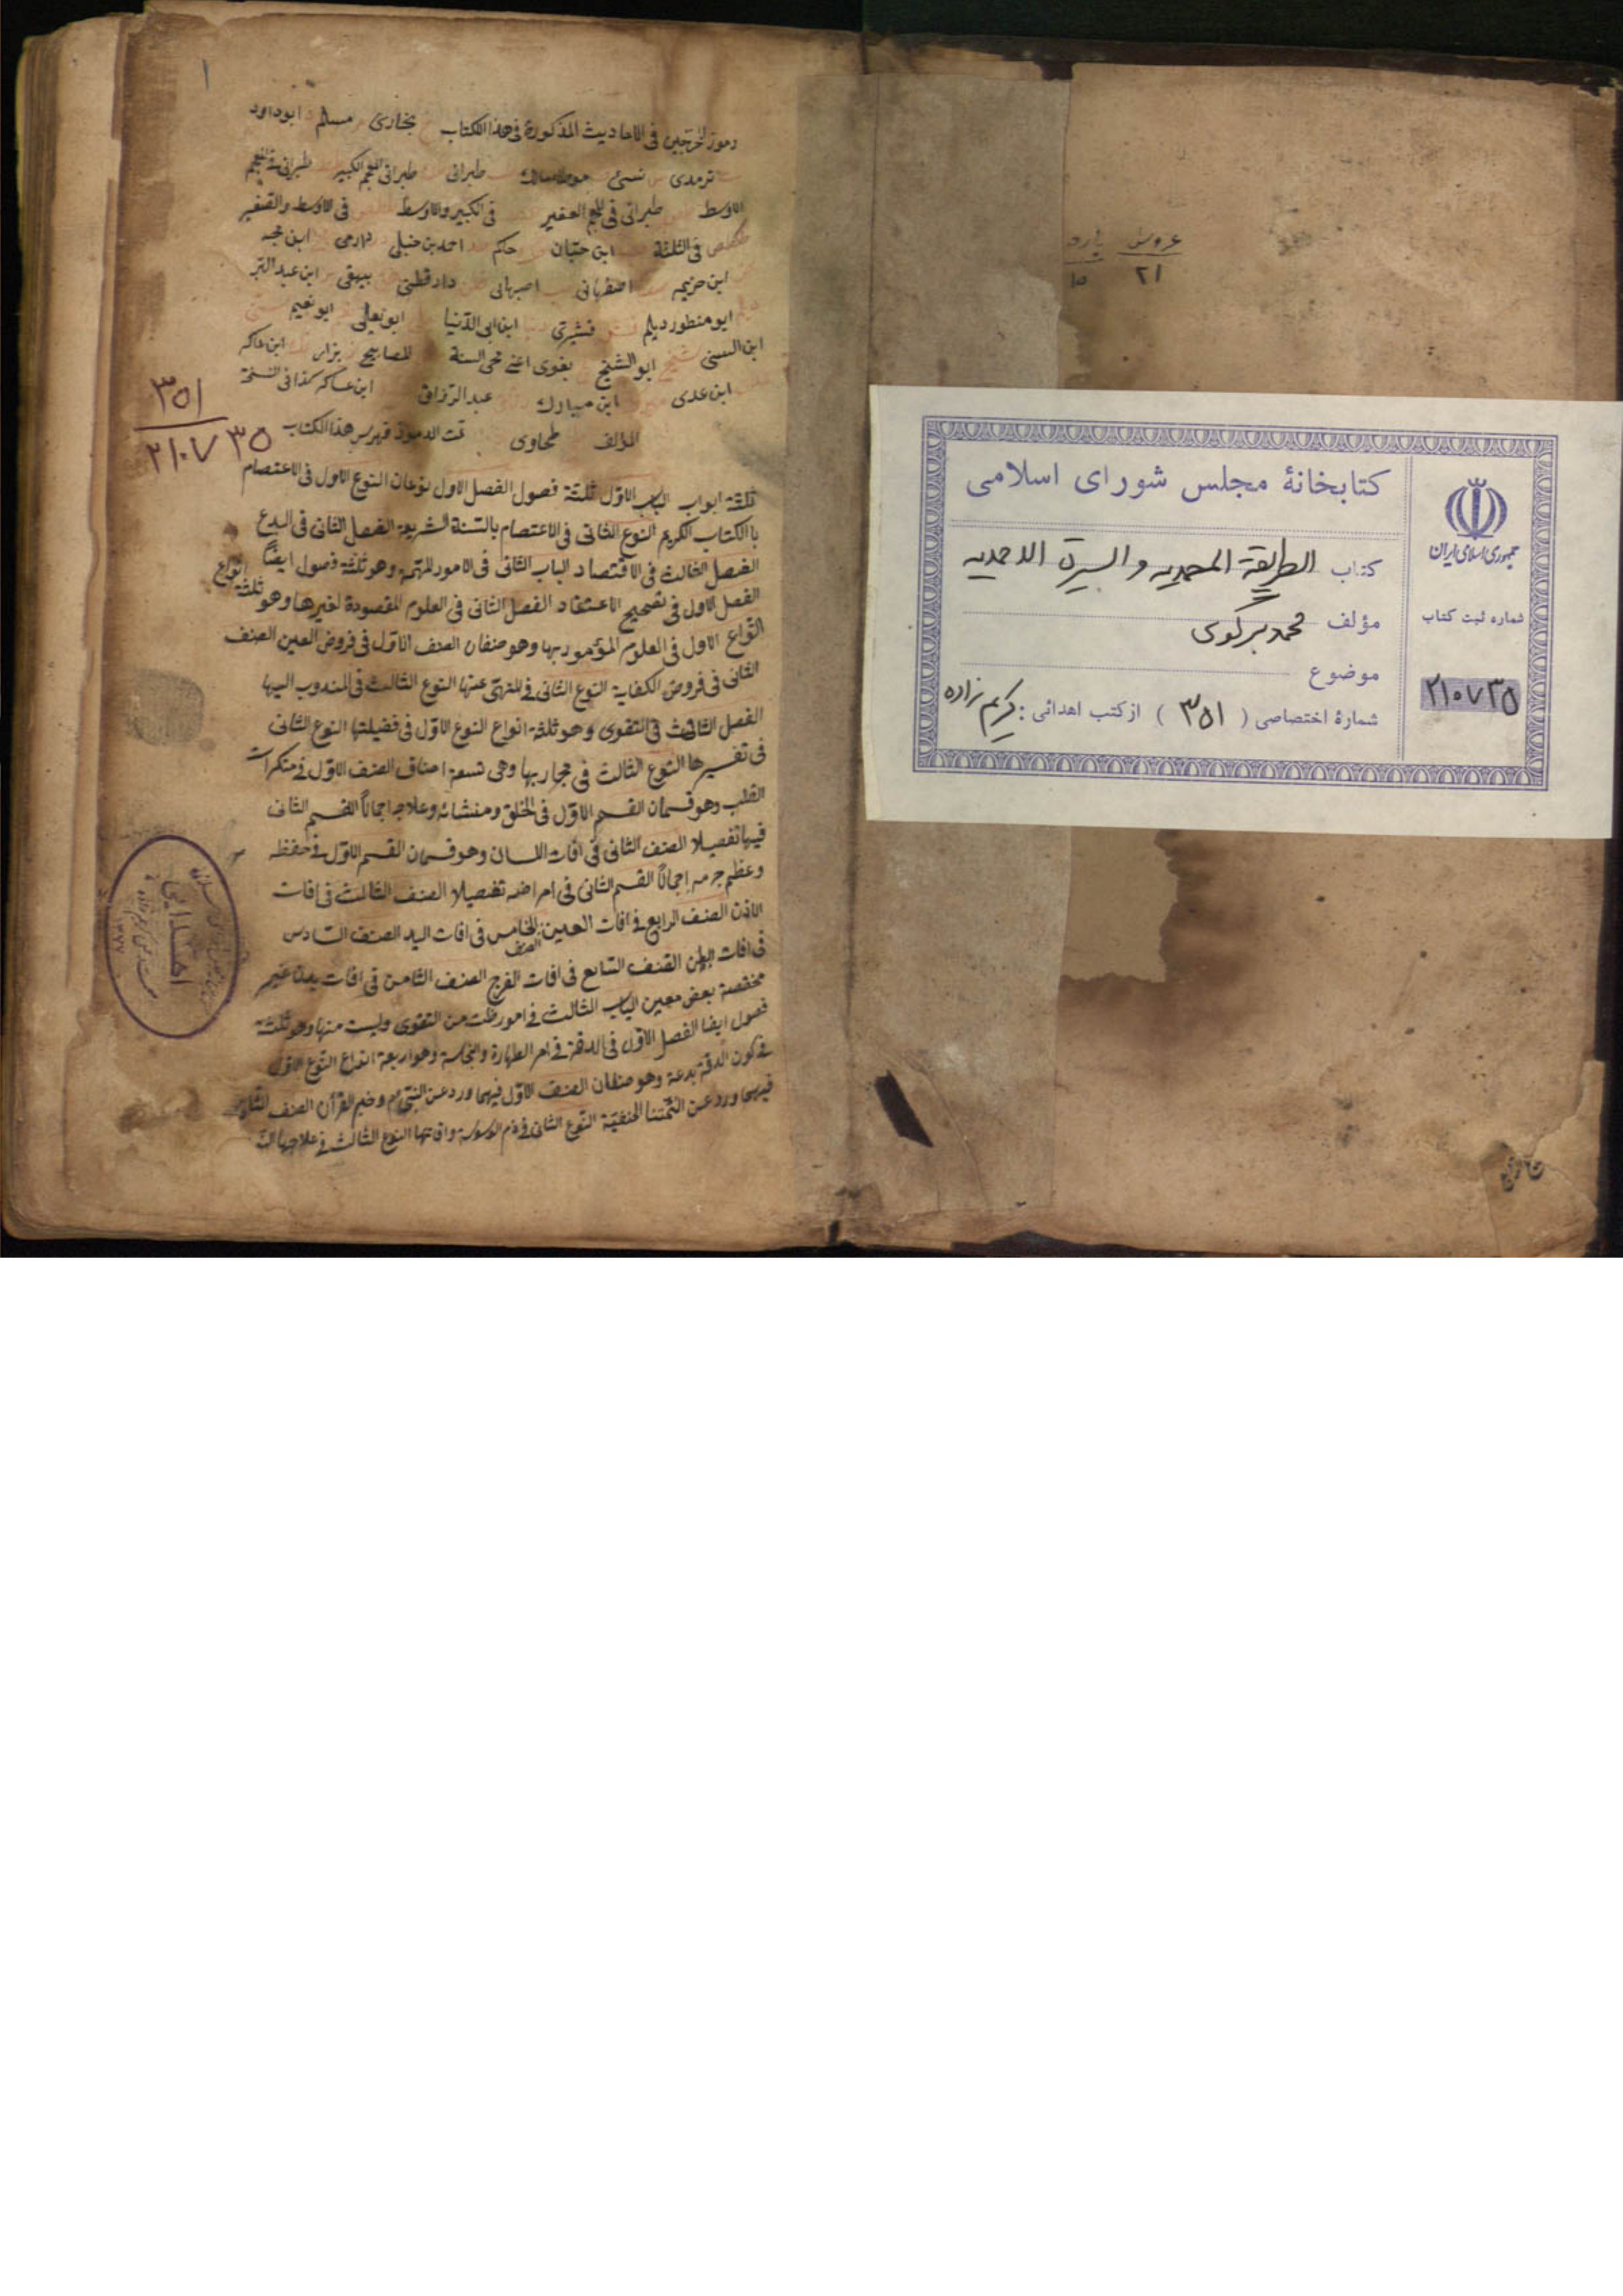 عروس پاره
٢١ ١٥
كتابخانهٔ مجلس شورای اسلامی
جمهوری اسلامی ایران
كتاب الطريقة المحمديه والسيرة الاحمديه
مؤلف محمد بركوی
موضوع
شمارهٔ اختصاصی ( ٣٥١ ) از كتب اهدائی : كريم زاده
شماره ثبت كتاب
٢١٠٧٣٥
١
رموز المخرجين فى الاحاديث المذكورة فى هذا الكتاب بخارى مسلم ابو داود
ترمدى نسئ موطا مالك طبرانى طبرانى فى المعجم الكبير طبرانى فى المعجم
الاوسط طبرانى فى المعجم الصغير فى الكبير والاوسط فى الاوسط والصغير
فى الثلثة ابن حبّان حاكم احمد بن حنبلى دارمى ابن ماجه
ابن خزيمه اصفهانى اصبهانى دار قطنى بيهقى ابن عبد البّر
ابو منصور ديلم قشيرى ابن ابى الدّنيا ابو يعلى ابو نعيم
ابن السنى ابو الشيخ بغوى اعنى محى السنة المصابيح بزار ابن عساكر
ابن عدى ابن مبارك عبد الرّزاق ابن عساكر كذا فى النسخة
المؤلف طحاوى تمت الرموز فهرس هذا الكتاب
٣٥١
٢١٠٧٣٥
ثلثة ابواب الباب الاوّل ثلثة فصول الفصل الاول نوعان النوع الاول فى الاعتصام
بالكتاب الكريم النوع الثانى فى الاعتصام بالسنة الشريعة الفصل الثانى فى البدع
الفصل الثالث فى الاقتصاد الباب الثانى فى الامور المهمة وهو ثلثة فصول ايضاً
الفصل الاول فى تصحيح الاعتقاد الفصل الثانى فى العلوم المقصودة لغيرها وهو ثلثة انواع
النّوع الاول فى العلوم المؤمور بها وهو صنفان الصنف الاوّل فى فروض العين الصنف
الثانى فى فروض الكفاية النوع الثانى فى المنهىّ عنها النوع الثالث فى المندوب اليها
الفصل الثالث فى التقوى وهو ثلثة انواع النوع الاوّل فى فضيلتها النوع الثانى
فى تفسيرها النوع الثالث فى مجاريها وهى تسعة اصناف الصنف الاوّل فى منكرات
القلب وهو قسمان القسم الاوّل فى الخلق ومنشائه وعلاجه اجمالاً القسم الثانى
فيها تفصيلا الصنف الثانى فى افات اللسان وهو قسمان القسم الاوّل فى حفظه
وعظم جرمه اجمالاً القسم الثانى فى امراضه تفصيلا الصنف الثالث فى افات
الاذن الصنف الرابع فى افات العين الصنف الخامس فى افات اليد الصنف السّادس
فى افات البطن الصّنف السّابع فى افات الفرج الصنف الثامن فى افات بدن غير
مختصة بعض معين الباب الثالث فى امور ظنت من التقوى وليست منها وهو ثلثة
فصول ايضا الفصل الاوّل فى الدقة فى امر الطهارة والنجاسة وهو اربعة انواع النّوع الاوّل
فى كون الدقّة بدعة وهو صنفان الصنف الاوّل فيما ورد عن النبىّ م
فيما ورد عن ائمّتنا الحنفيّة النّوع الثانى فى ذم الوسوسة وافاتها النوع الثالث فى علاجها
اهدايى
١٣٧٧